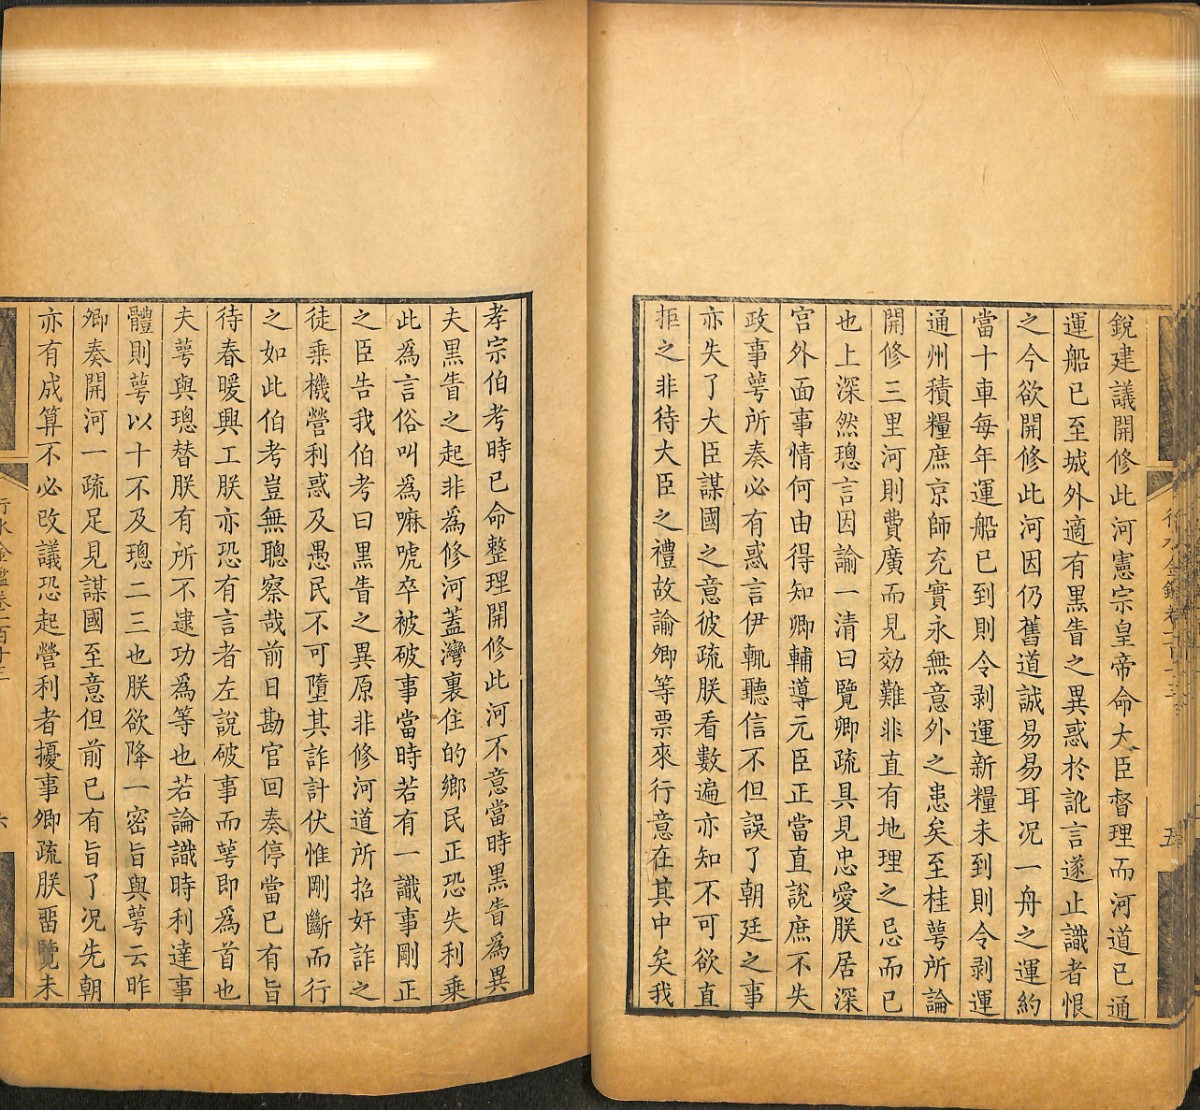 銳建議開修此河憲宗皇帝命大臣督理而河道已通
運船已至城外適有黑眚之異惑於訛言遂止識者恨
之今欲開修此河因仍舊道誠易易耳况一舟之運約
當十車每年運船已到則令剥運新糧未到則令剥運
通州積糧庶京師充實永無意外之患矣至桂萼所論
開修三里河則費廣而見効難非直有地理之忌而已
也上深然璁言因諭一清曰覽卿疏具見忠愛朕居深
宮外面事情何由得知卿輔導元臣正當直說庶不失
政事萼所奏必有惑言伊輒聽信不但誤了朝廷之事
亦失了大臣謀國之意彼疏朕看數遍亦知不可欲直
拒之非待大臣之禮故諭卿等票來行意在其中矣我
孝宗伯考時已命整理開修此河不意當時黑眚為異
夫黑眚之起非為修河蓋灣裏住的鄉民正恐失利乘
此為言俗叫為嘛唬卒被破事當時若有一識事剛正
之臣告我伯考曰黑眚之異原非修河道所招奸詐之
徒乘機營利惑及愚民不可墮其詐計伏惟剛斷而行
之如此伯考豈無聰察哉前日勘官回奏停當已有旨
待春暖興工朕亦恐有言者左說破事而萼即為首也
夫萼與璁替朕有所不逮功為等也若論識時利達事
體則萼以十不及璁二三也朕欲降一密旨與萼云昨
卿奏開河一疏足見謀國至意但前已有旨了况先朝
亦有成算不必改議恐起營利者擾事卿疏朕畱覽未
行水金鑑卷一百十三
六